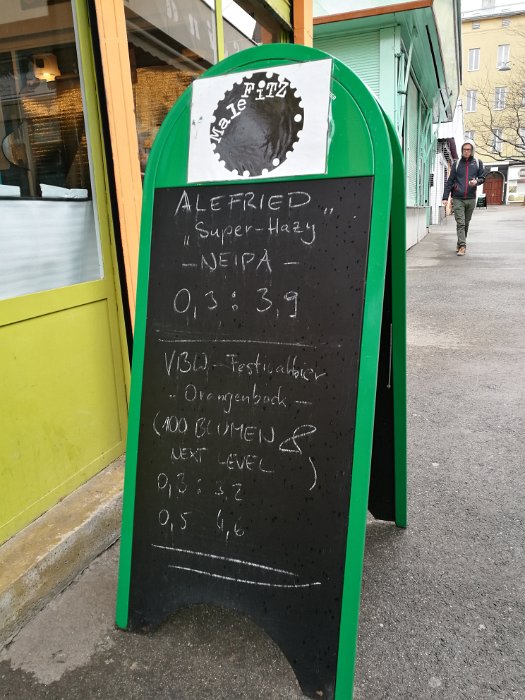 MaleFiTZ
ALEFRIED
„Super-Hazy"
- NEIPA -
0,3 : 3,9
VBW - Festivalbier
- Orangenbock -
(100 BLUMEN &
NEXT LEVEL)
0,3 : 3,2
0,5 4,6